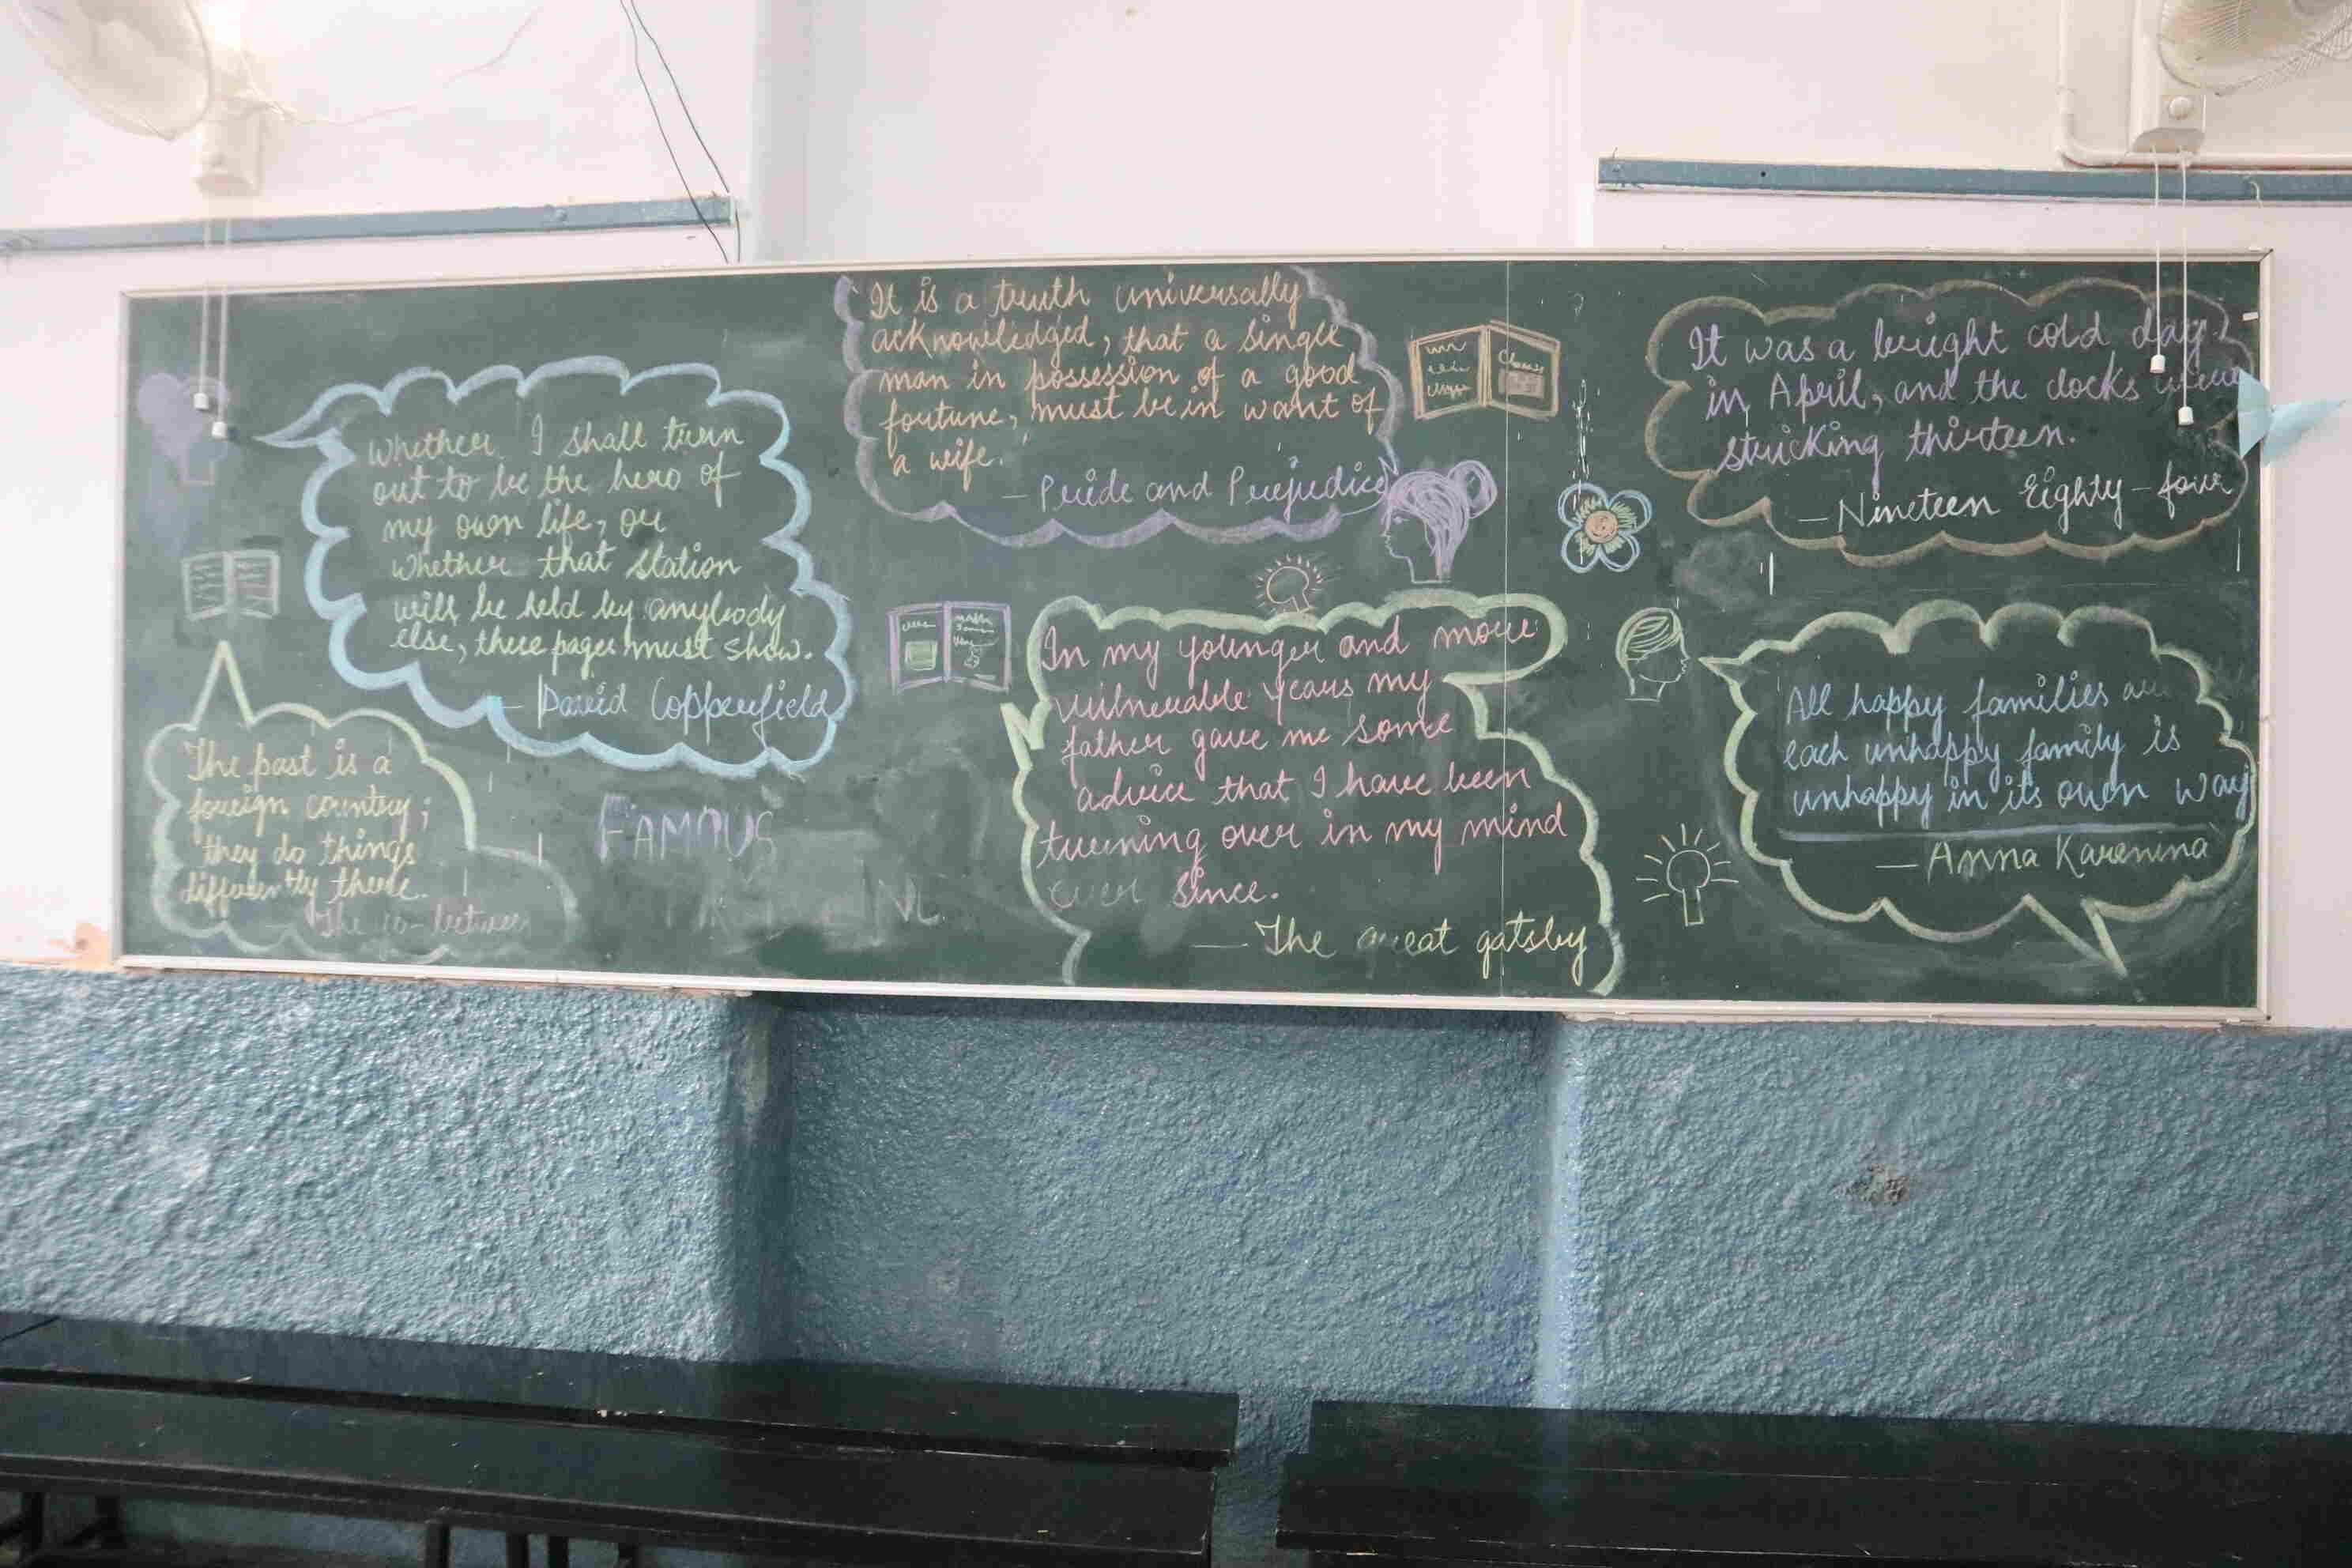 Whether I shall turn
out to be the hero of
my own life, or
whether that station
will be held by anybody
else, these pages must show.
- David Copperfield
The past is a
foreign country;
they do things
differently there.
FAMOUS
It is a truth universally
acknowledged, that a single
man in possession of a good
fortune, must be in want of
a wife.
- Pride and Prejudice
In my younger and more
vulnerable years my
father gave me some
advice that I have been
turning over in my mind
ever since.
- The great gatsby
It was a bright cold day
in April, and the clocks were
stricking thirteen.
- Nineteen Eighty-four
All happy families
each unhappy family is
unhappy in its own way
- Anna Karenina